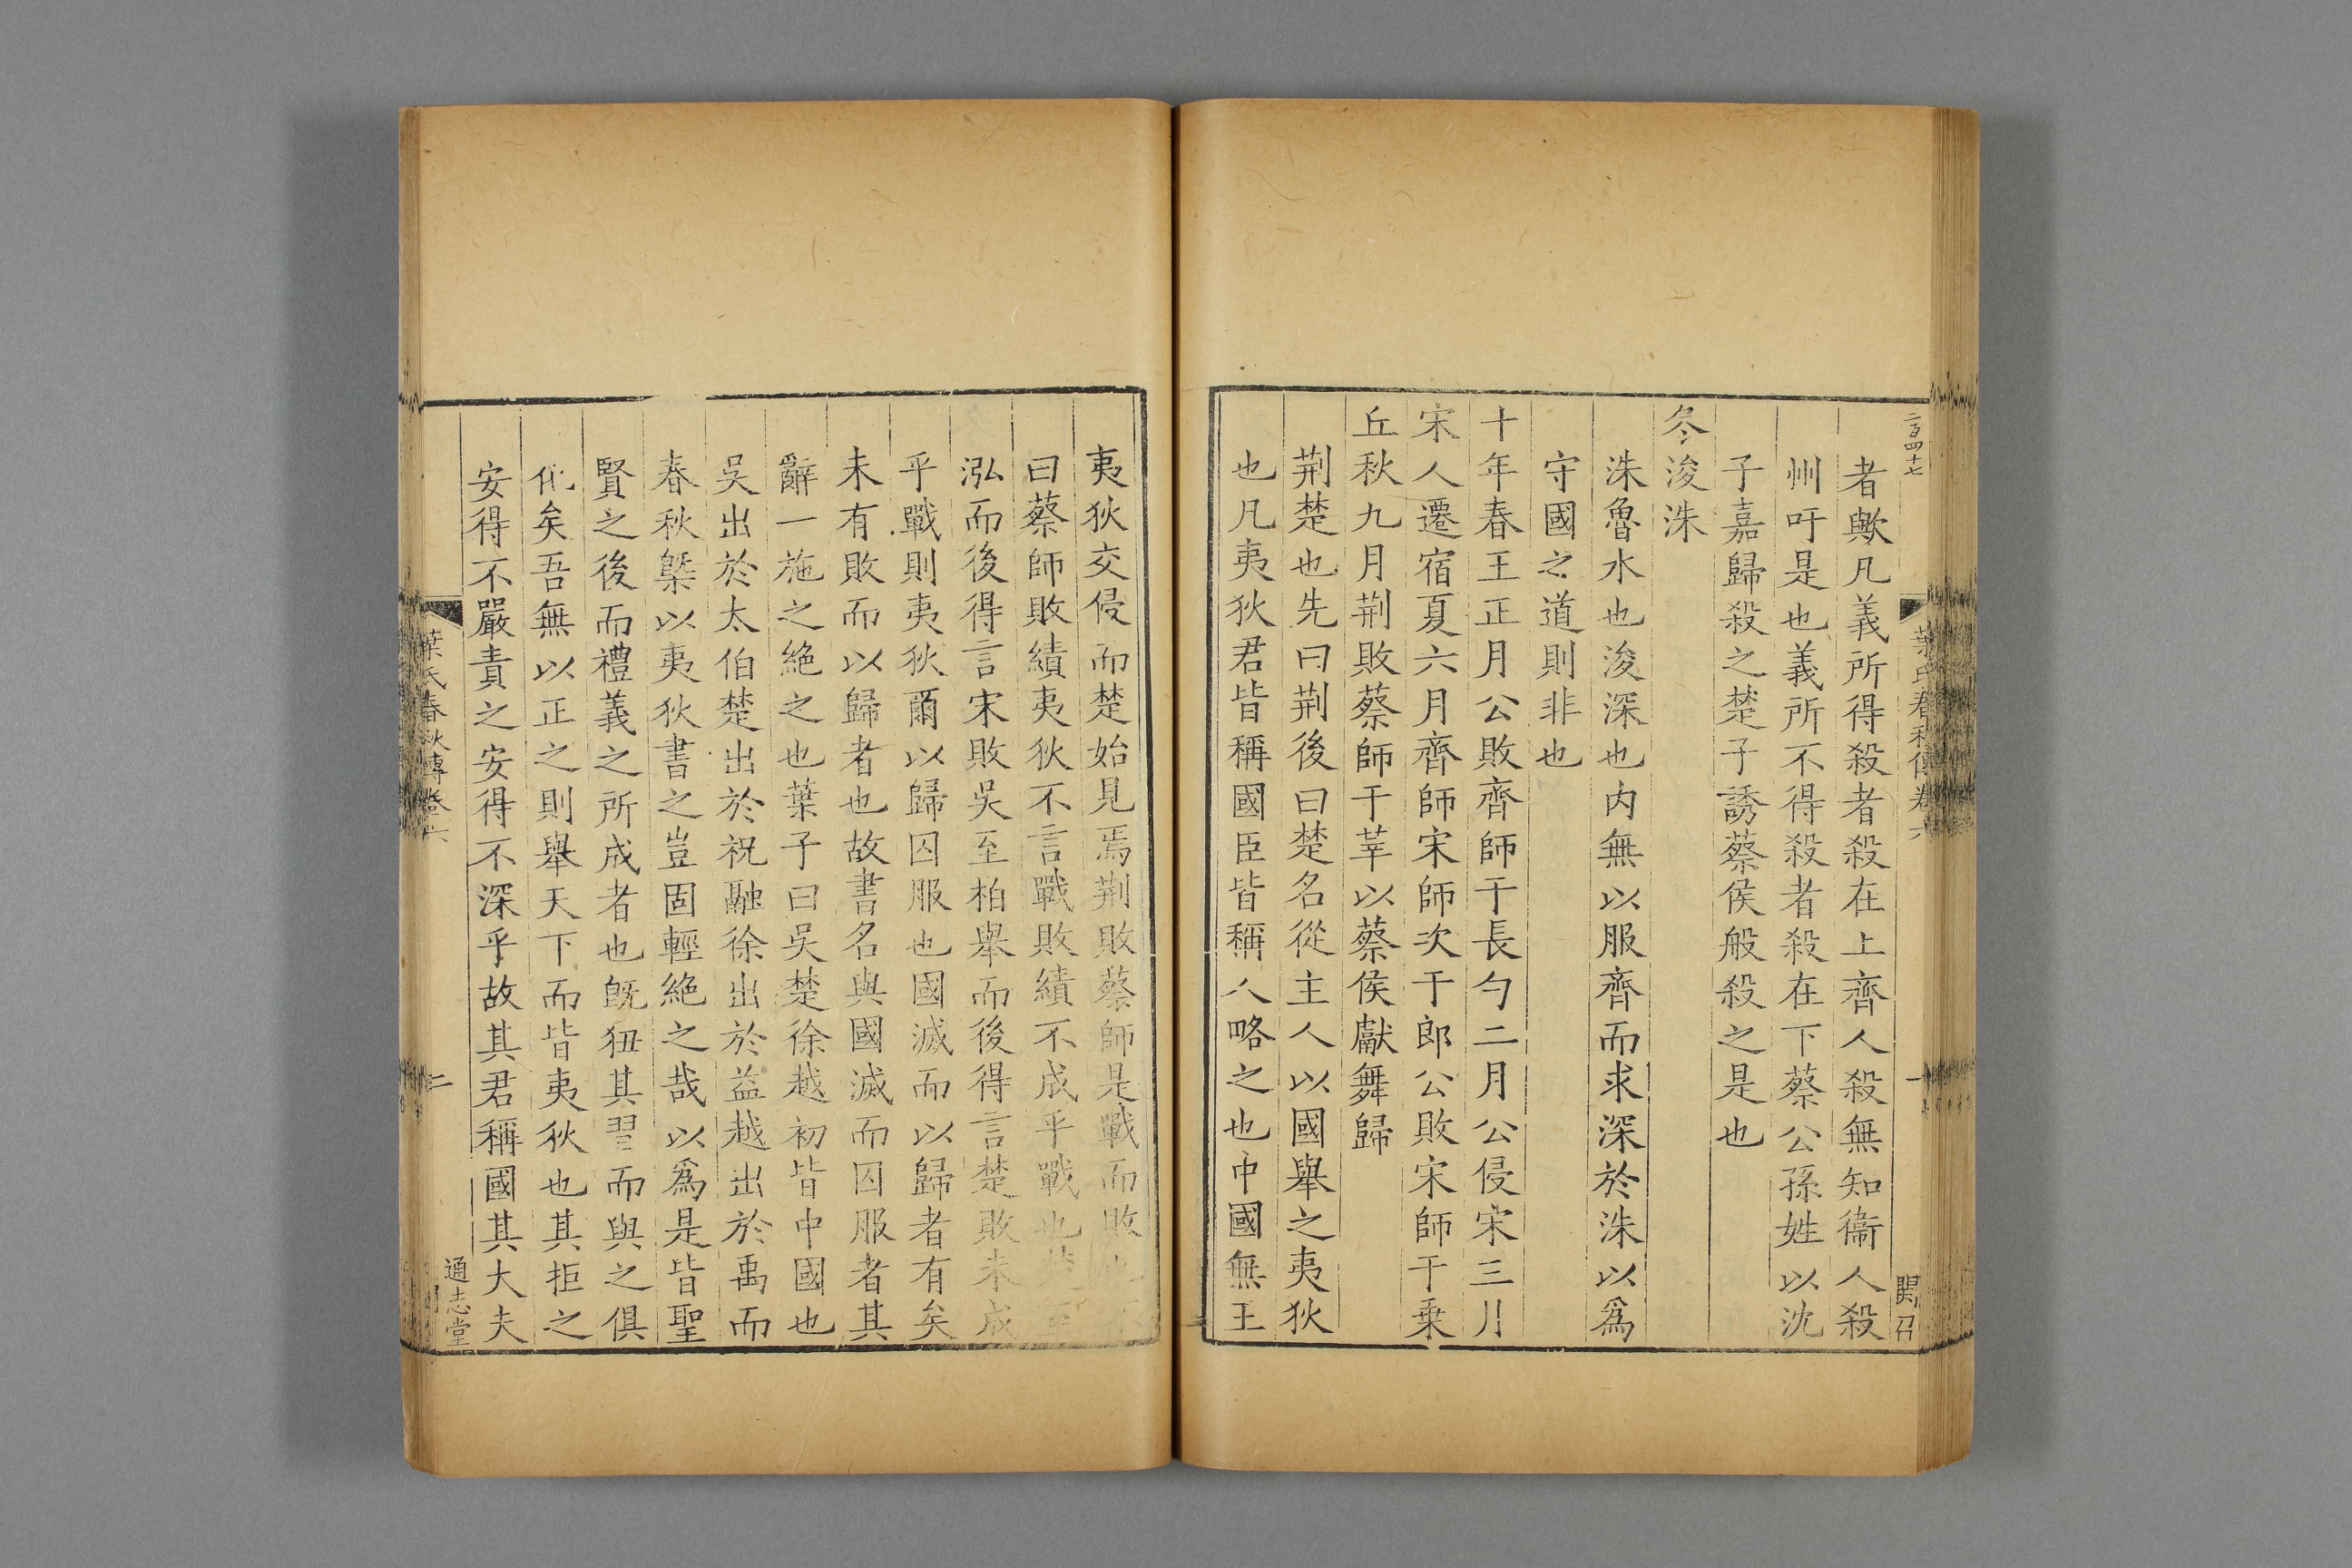 二百四十七
葉氏春秋傳卷六
一
者歟凡義所得殺者殺在上齊人殺無知衞人殺
州吁是也義所不得殺者殺在下蔡公孫姓以沈
子嘉歸殺之楚子誘蔡侯般殺之是也
冬浚洙
洙魯水也浚深也内無以服齊而求深於洙以爲
守國之道則非也
十年春王正月公敗齊師于長勺二月公侵宋三月
宋人遷宿夏六月齊師宋師次于郎公敗宋師于乗
丘秋九月荆敗蔡師于莘以蔡侯獻舞歸
荆楚也先曰荆後曰楚名從主人以國舉之夷狄
也凡夷狄君皆稱國臣皆稱人略之也中國無王
夷狄交侵而楚始見焉荆敗蔡師是戰而敗
曰蔡師敗績夷狄不言戰敗績不成乎戰也楚至
泓而後得言宋敗吳至柏舉而後得言楚敗未成
乎戰則夷狄爾以歸囚服也國滅而以歸者有矣
未有敗而以歸者也故書名與國滅而囚服者其
辭一施之絶之也葉子曰吳楚徐越初皆中國也
吳出於太伯楚出於祝融徐出於益越出於禹而
春秋槩以夷狄書之豈固輕絶之哉以爲是皆聖
賢之後而禮義之所成者也既狃其習而與之俱
化矣吾無以正之則舉天下而皆夷狄也其拒之
安得不嚴責之安得不深乎故其君稱國其大夫
葉氏春秋傳卷六
二
通志堂